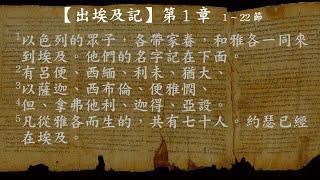 【出埃及記】第1章 1~22節
1以色列的眾子，各帶家眷，和雅各一同來
到埃及。他們的名字記在下面。
2有呂便、西緬、利未、猶大、
3以薩迦、西布倫、便雅憫、
4但、拿弗他利、迦得、亞設。
5凡從雅各而生的，共有七十人。約瑟已經
在埃及。